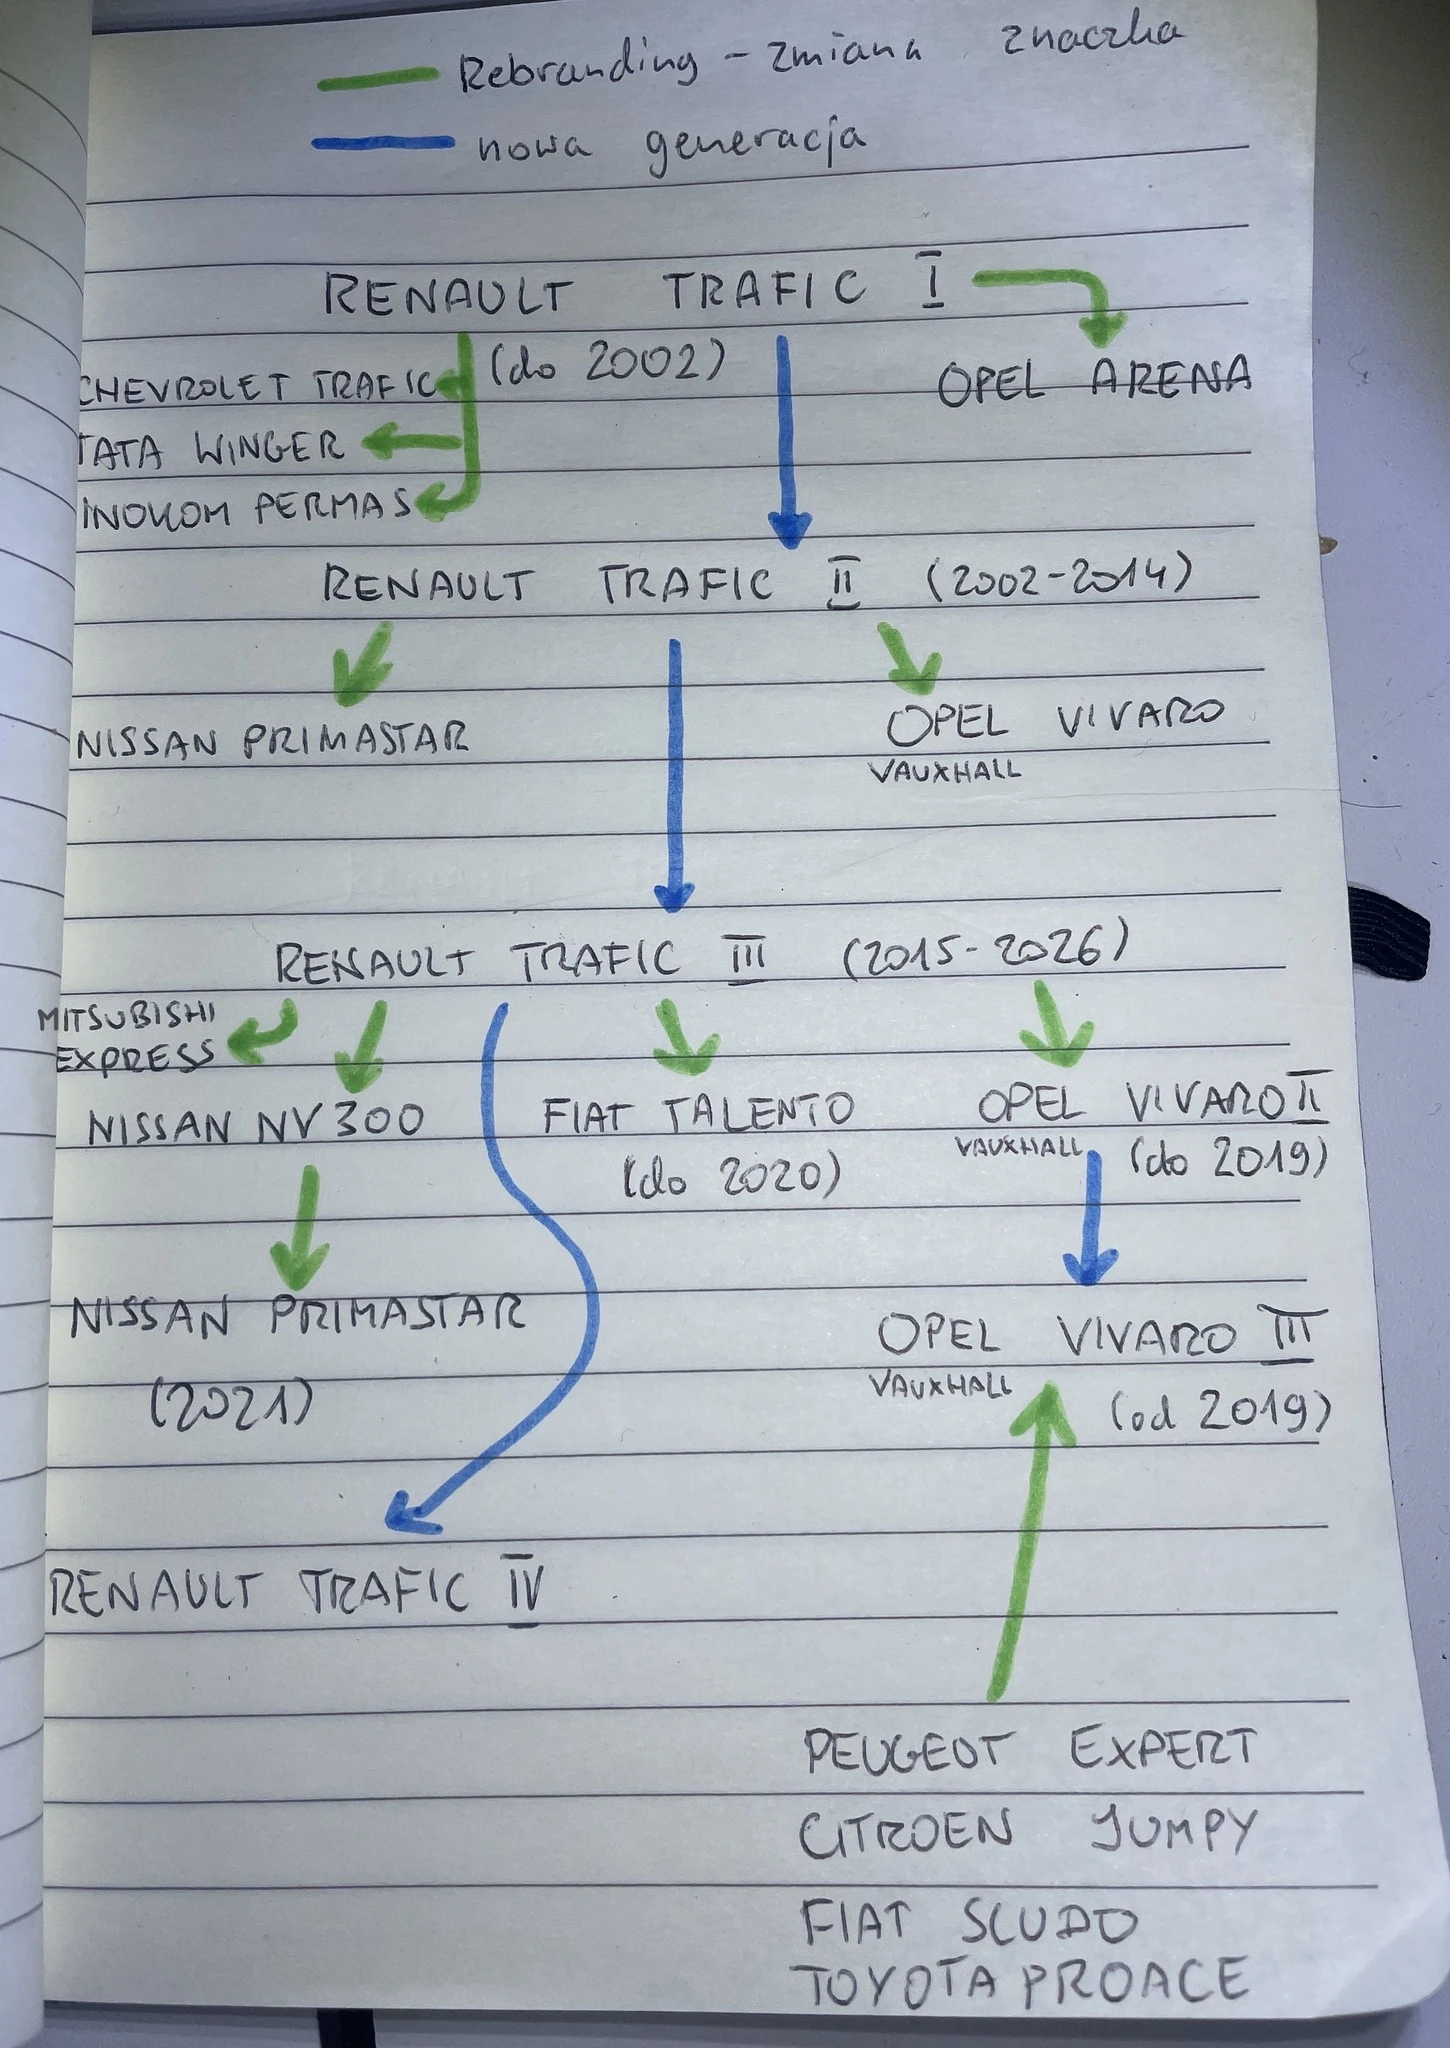 Rebranding - zmiana znaczka
nowa generacja
RENAULT TRAFIC I
(do 2002)
OPEL ARENA
CHEVROLET TRAFIC
TATA WINGER
INOKOM PERMAS
RENAULT TRAFIC II (2002-2014)
NISSAN PRIMASTAR
OPEL VIVARO
VAUXHALL
RENAULT TRAFIC III (2015-2026)
MITSUBISHI
EXPRESS
NISSAN NV300
FIAT TALENTO
(do 2020)
OPEL VIVARO II
VAUXHALL (do 2019)
NISSAN PRIMASTAR
(2021)
OPEL VIVARO III
VAUXHALL
(od 2019)
RENAULT TRAFIC IV
PEUGEOT EXPERT
CITROEN JUMPY
FIAT SCUDO
TOYOTA PROACE